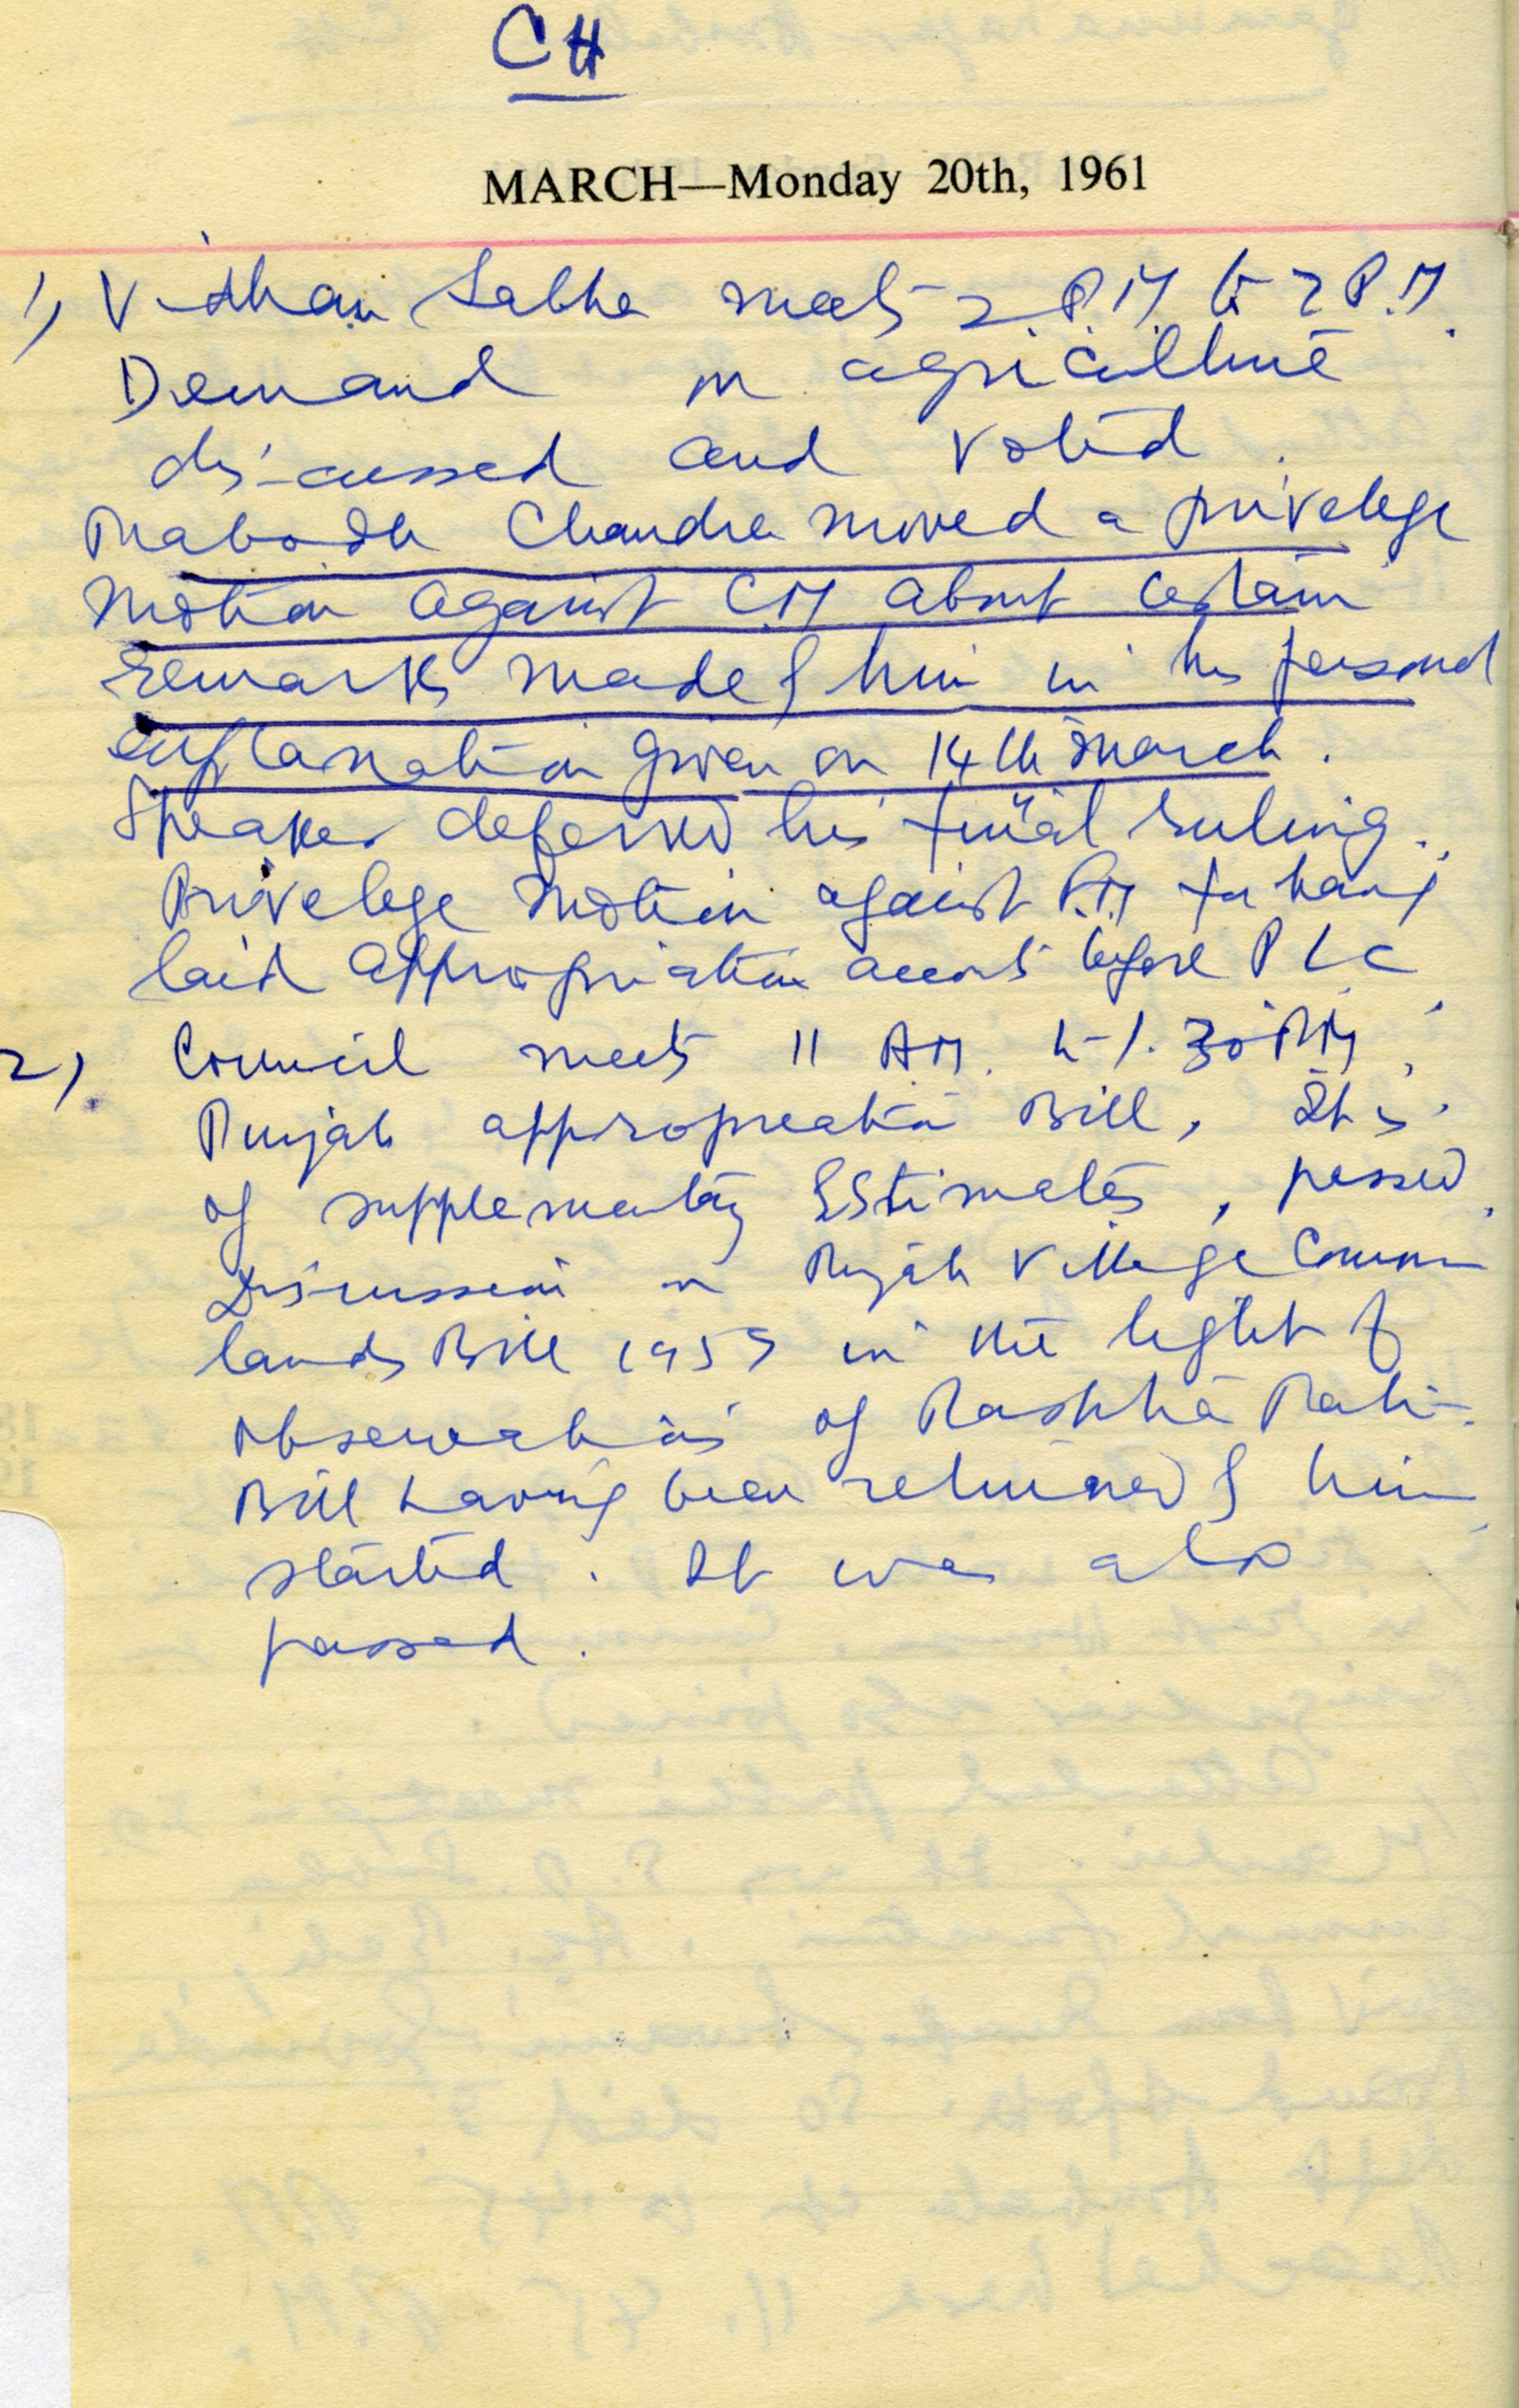 CH
MARCH—Monday 20th, 1961
1) Vidhan Sabha meets 2 P.M. to 7 P.M.
Demand on agriculture
discussed and voted.
Prabodh Chandra moved a privelege
motion against C.M about certain
remarks made by him in his personal
explanation given on 14th March.
Speaker deferred his final ruling.
Privelege motion against F.M for having
laid appropriation accounts before P
2) Council meets 11 AM. to 1.30 PM.
Punjab appropreation Bill,
of supplementary Estimates, passed.
Discussion on Punjab Village Common
lands Bill 195 in the light of
observations of Rashtra Pati
Bill having been returned by him
started. It was also
passed.